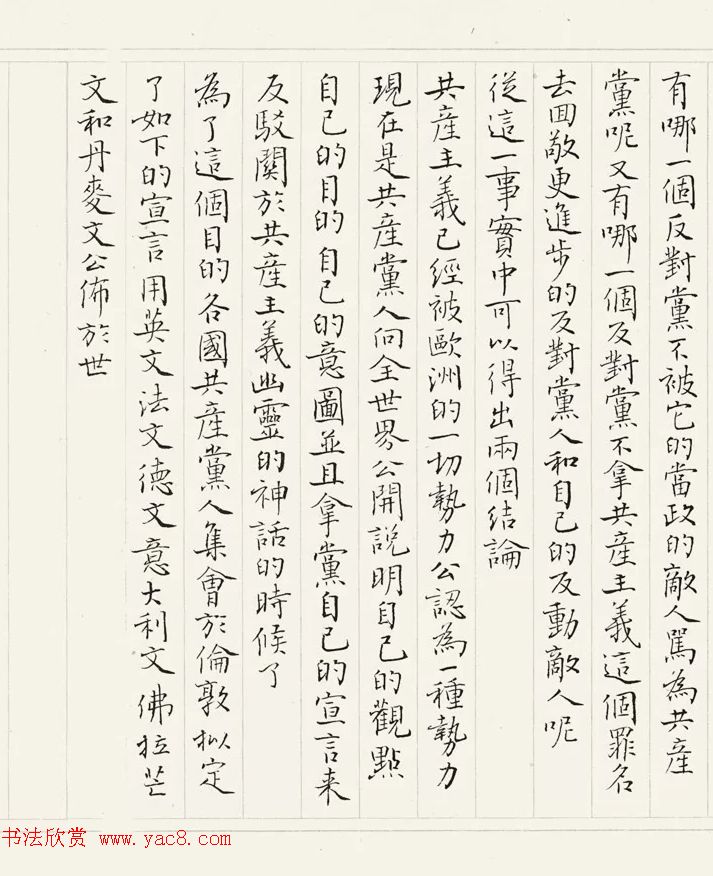 有哪一個反對黨不被它的當政的敵人罵為共產
黨呢又有哪一個反對黨不拿共產主義這個罪名
去回敬更進步的反對黨人和自己的反動敵人呢
從這一事實中可以得出兩個結論
共產主義已經被歐洲的一切勢力公認為一種勢力
現在是共產黨人向全世界公開說明自己的觀點
自己的目的自己的意圖並且拿黨自己的宣言来
反駁關於共產主義幽靈的神話的時候了
為了這個目的各國共產黨人集會於倫敦拟定
了如下的宣言用英文法文德文意大利文佛拉芒
文和丹麥文公佈於世
书法欣赏 www.yac8.com